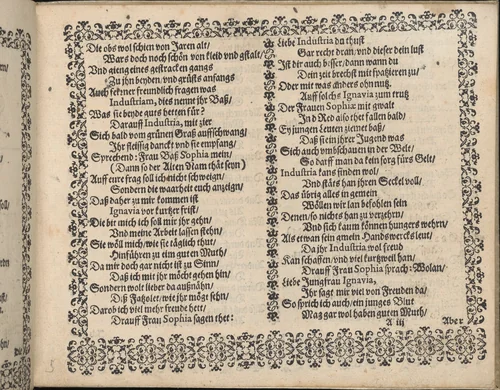 Die obs wol schien von Jaren alt/
Wars doch noch schön von kleid vnd gstalt/
Vnd gieng eines gestracken gangs
Zu jhn beyden vnd grüsts anfangs
Auch ferner freundlich fragen was
Industriam, dies nenne jhr Baß/
Was sie beyde guts hetten für?
Darauff Industria, mit zier
Sich bald vom grünen Graß auffschwang/
Ihr fleissig danckt vnd sie empfang/
Sprechend: Frau Baß Sophia mein/
(Dann so der Alten Nam thät seyn)
Auff eure frag soll ich nicht schweign/
Sondern die waarheit euch anzeign/
Daß daher zu mir kommen ist
Ignavia vor kurtzer frist/
Die bit mich ich soll mit jhr gehn/
Vnd meine Arbeit lassen stehn/
Sie wöll mich/wie sie täglich thut/
Hinführen zu eim guten Muth/
Da mir doch gar nicht ist zu Sinn/
Daß ich mit jhr möcht gehen hin/
Sondern wolt lieber da außnähn/
Diß Fatzolet/wie jhr mögt sehn/
Darob ich viel mehr freude hett/
Drauff Frau Sophia sagen thet:
Liebe Industria du thust
Gar recht dran/vnd dieser dein lust
Ist dir auch besser/dann wann du
Dein zeit brechst mit spatzieren zu/
Oder mit was anders ohn nutz.
Auff solchs Ignavia zum trutz
Der Frauen Sophiæ mit gwalt
In d Red also thet fallen bald/
Ey jungen Leuten ziemet baß/
Daß sie in jhrer Jugend was
Sich auch vmbschauen in der Welt/
So darff man da kein sorg fürs Gelt/
Industria kans finden wol/
Vnd stäts han jhren Seckel voll/
Das übrig alles in gemein
Wöllen wir lan befohlen sein
Denen/so nichts han zu verzehrn/
Vnd sich kaum können hungers wehrn/
Als etwan sein gmein Handwercksleut/
Da jhr Industria wol freud
Kan schaffen/vnd viel kurtzweil han/
Drauff Frau Sophia sprach: Wolan/
Liebe Jungfrau Ignavia,
Ihr sagt mir viel von Freuden da/
So sprich ich auch/ein junges Blut
Mag gar wol haben guten Muth/
A iij
Aber